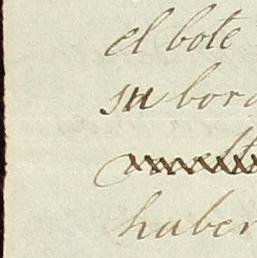 el bote
su bor
haber